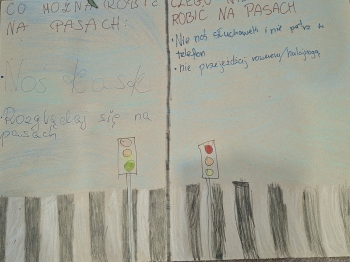 CO MOŻNA ROBIĆ
NA PASACH:
Noś kask
• Rozglądaj się na
pasach
CZEGO NIE
ROBIĆ NA PASACH
• Nie noś słuchawek i nie patrz w
telefon
• nie przejeżdżaj rowerem/hulajnogą